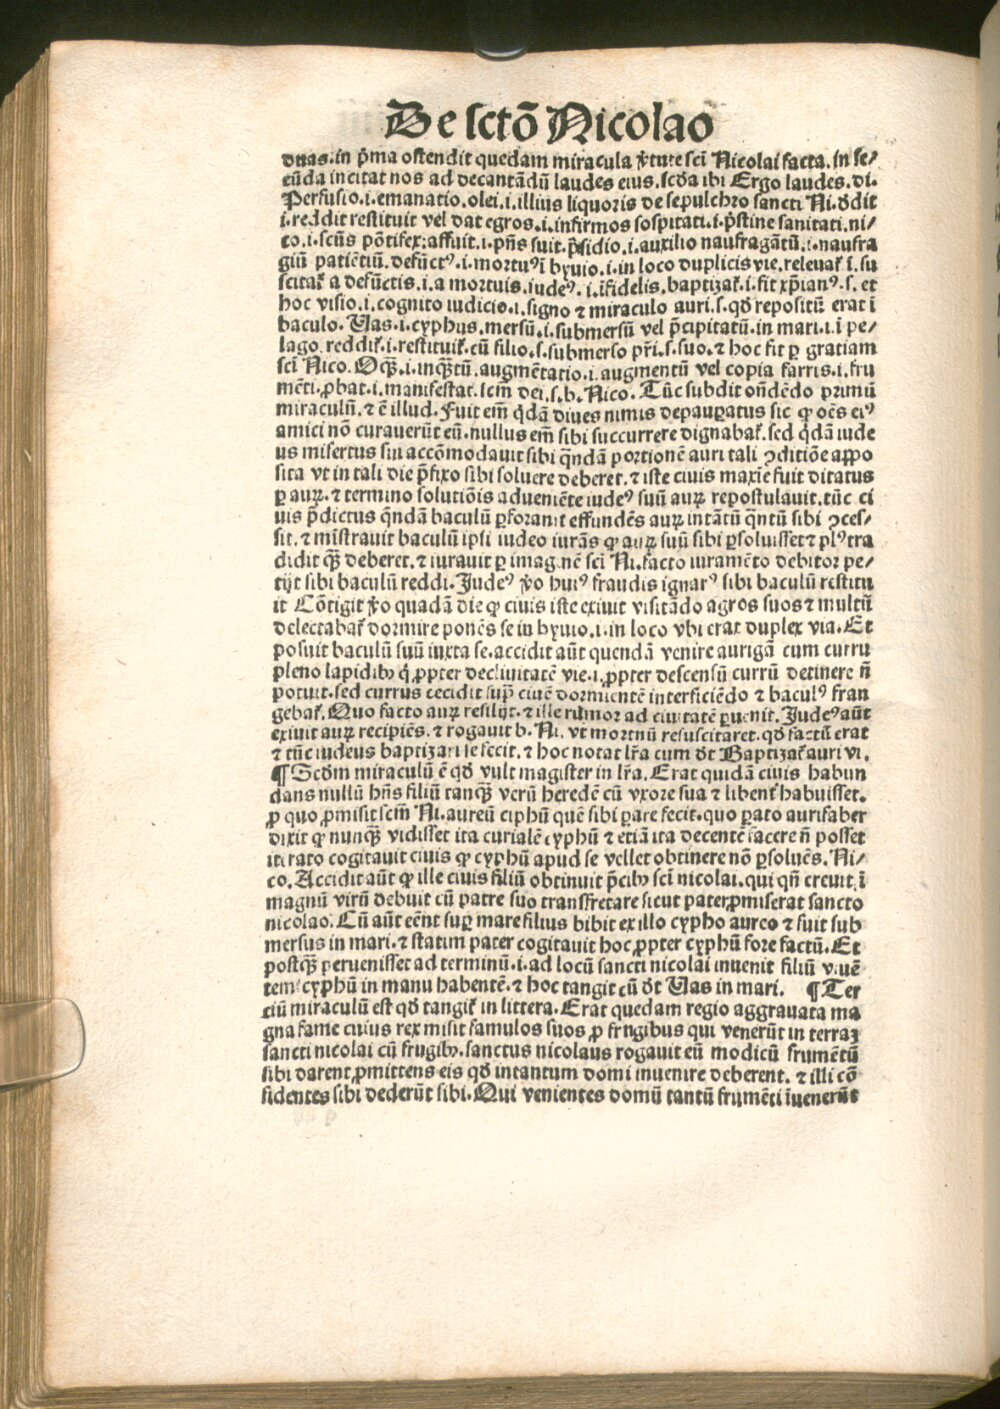 De sctō Nicolao
duas. in p̄ma ostendit quedam miracula v̄tute sci̅ Nicolai facta. in se/
cūda incitat nos ad decantādū laudes eius. scd̄a ibi Ergo laudes. di.
Perfusio .i. emanatio. olei .i. illius liquoris de sepulchro sancti Ni. ꝺdit
.i. reddit restituit vel dat egros .i. infirmos sospitati .i. p̄stine sanitati. ni/
co .i. scūs pōtifex: affuit .i. pn̄s fuit. p̄sidio .i. auxilio naufragātū .i. naufra
giū patiētiū. defūctꝰ .i. mortuꝰ ī byuio .i. in loco duplicis vie. releuat᷑ .i. su
scitat᷑ a defūctis .i. a mortuis. iudeꝰ .i. īfidelis. baptizat᷑ .i. fit xp̄ianꝰ. s. et
hoc visio .i. cognito iudicio .i. signo ⁊ miraculo auri. s. qd̄ repositū erat ī
baculo. Uas .i. cyphus. mersū .i. submersū vel p̄cipitatū. in mari .i. ī pe/
lago. reddit᷑ .i. restituit᷑. cū filio. s. submerso pr̄i. s. suo. ⁊ hoc fit ꝑ gratiam
sci̅ Nico. Oqꝫ̄ .i. inqꝫ̄tū. augmētatio .i. augmentū vel copia farris .i. fru
mēti. ꝓbat .i. manifestat. scm̄ dei. s. b. Nico. Tūc subdit on̄dēdo primū
miraculū. ⁊ ē illud. Fuit em̄ q̇dā diues nimis depauꝑatus sic ꝙ oēs eiꝰ
amici nō curauerūt eū. nullus em̄ sibi succurrere dignabat᷑. sed q̇dā iude
us misertus sui accōmodauit sibi qn̄dā portionē auri tali ꝯditiōe appo
sita vt in tali die p̄fixo sibi soluere deberet. ⁊ iste ciuis maxīe fuit ditatus
ꝑ auꝝ. ⁊ termino solutiōis adueniēte iudeꝰ suū auꝝ repostulauit. tūc ci
uis p̄dictus qn̄dā baculū ꝑforauit effundēs auꝝ intātū qn̄tū sibi ꝯces/
sit. ⁊ mīstrauit baculū ipsi iudeo iurās ꝙ auꝝ suū sibi ꝑsoluisset ⁊ plꝰ tra
didit qꝫ̄ deberet. ⁊ iurauit ꝑ imaginē sci̅ Ni. facto iuramēto debitor pe/
tijt sibi baculū reddi. Judeꝰ v̄o huiꝰ fraudis ignarꝰ sibi baculū restitu
it Cōtigit v̄o quadā die ꝙ ciuis iste exiuit visitādo agros suos ⁊ multū
delectabat᷑ dormire ponēs se in byuio .i. in loco vbi erat duplex via. Et
posuit baculū suū iuxta se. accidit aūt quendā venire aurigā cum curru
pleno lapidibꝫ q̇ ꝓpter decliuitatē vie .i. ꝓpter descensū currū detinere n̄
potuit. sed currus cecidit suꝑ ciuē dormientē interficiēdo ⁊ baculꝰ fran
gebat᷑. Quo facto auꝝ resilijt. ⁊ ille rumor ad ciuitatē ꝑuenit. Judeꝰ aūt
exiuit auꝝ recipiēs. ⁊ rogauit b. Ni. vt mortuū resuscitaret. qd̄ factū erat
⁊ tūc iudeus baptizari se fecit. ⁊ hoc notat lr̄a cum dt̄ Baptizat᷑ auri vi.
¶ Scd̄m miraculū ē qd̄ vult magister in lr̄a. Erat quidā ciuis habun
dans nullū hn̄s filiū tanqꝫ̄ verū heredē cū vxore sua ⁊ libent᷑ habuisset.
ꝓ quo ꝓmisit scm̄ Ni. aureū ciphū quē sibi ꝑare fecit. quo ꝑato aurifaber
dixit ꝙ nunqꝫ̄ vidisset ita curialē cyphū ⁊ etiā ita decentē facere n̄ posset
iterato cogitauit ciuis ꝙ cyphū apud se vellet obtinere nō ꝑsoluēs. Ni/
co. Accidit aūt ꝙ ille ciuis filiū obtinuit p̄cibꝫ sci̅ nicolai. qui qn̄ creuit. ī
magnū virū debuit cū patre suo transfretare sicut pater ꝓmiserat sancto
nicolao. Cū aūt eēnt suꝑ mare filius bibit ex illo cypho aureo ⁊ fuit sub
mersus in mari. ⁊ statim pater cogitauit hoc ꝓpter cyphū fore factū. Et
postqꝫ̄ peruenisset ad terminū .i. ad locū sancti nicolai inuenit filiū viuē
tem cyphū in manu habentē. ⁊ hoc tangit cū dt̄ Uas in mari. ¶ Ter
ciū miraculū est qd̄ tangit᷑ in littera. Erat quedam regio aggrauata ma
gna fame cuius rex misit famulos suos ꝓ frugibus qui venerūt in terraꝫ
sancti nicolai cū frugibꝫ. sanctus nicolaus rogauit eū modicū frumētū
sibi darent ꝓmittens eis qd̄ intantum domi inuenire deberent. ⁊ illi cō
fidentes sibi dederūt sibi. Qui venientes domū tantū frumēti īuenerūt